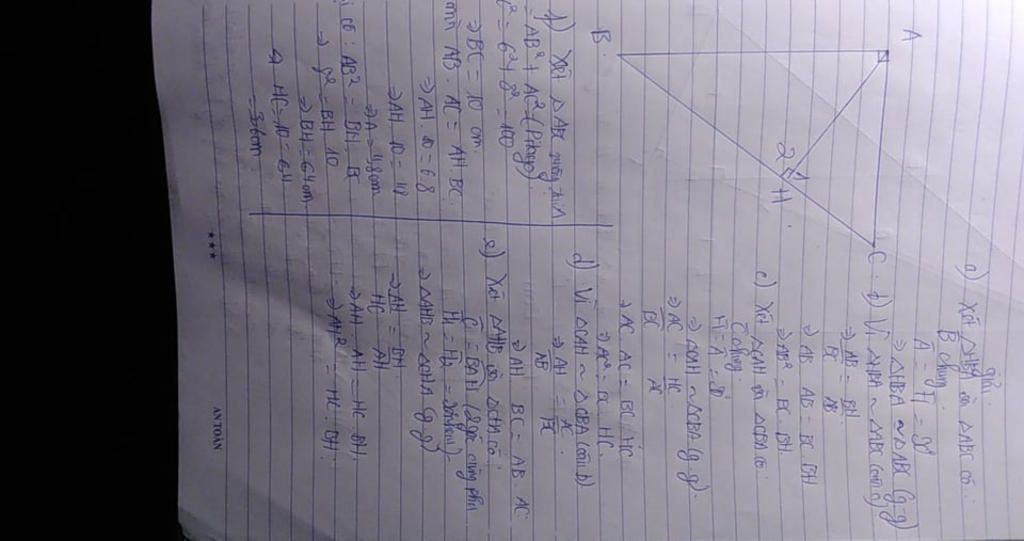 A
B
C
H
1
2
giải
a) Xét △HBA và △ABC có:
B chung
A = H = 90°
⇒ △HBA ~ △ABC (g-g)
b) Vì △HBA ~ △ABC (câu a)
⇒ AB/BC = BH/AB
⇒ AB . AB = BC . BH
⇒ AB² = BC . BH
c) Xét △CAH và △CBA có:
C chung
H = A = 90°
⇒ △CAH ~ △CBA (g-g)
⇒ AC/BC = HC/AC
⇒ AC . AC = BC . HC
⇒ AC² = BC . HC
d) Vì △CAH ~ △CBA (câu b)
⇒ AH/AB = AC/BC
⇒ AH . BC = AB . AC
e) Xét △AHB và △CHA có:
C = BAH (2 góc cùng phụ
H₁ = H₂ = 90°
⇒ △AHB ~ △CHA (g-g)
⇒ AH/HC = BH/AH
⇒ AH . AH = HC . BH
⇒ AH² = HC . BH
f) Xét △ABC vuông
= AB² + AC² (Pitago)
= 6² + 8² = 100
⇒ BC = 10 cm
AB . AC = AH . BC
⇒ AH . 10 = 6.8
⇒ AH . 10 = 48
⇒ A = 4,8cm
có : AB² = BH . BC
⇒ 8² = BH . 10
⇒ BH = 6,4 cm
HC = 10 - 6,4
= 3,6cm
*** AN TOÀN